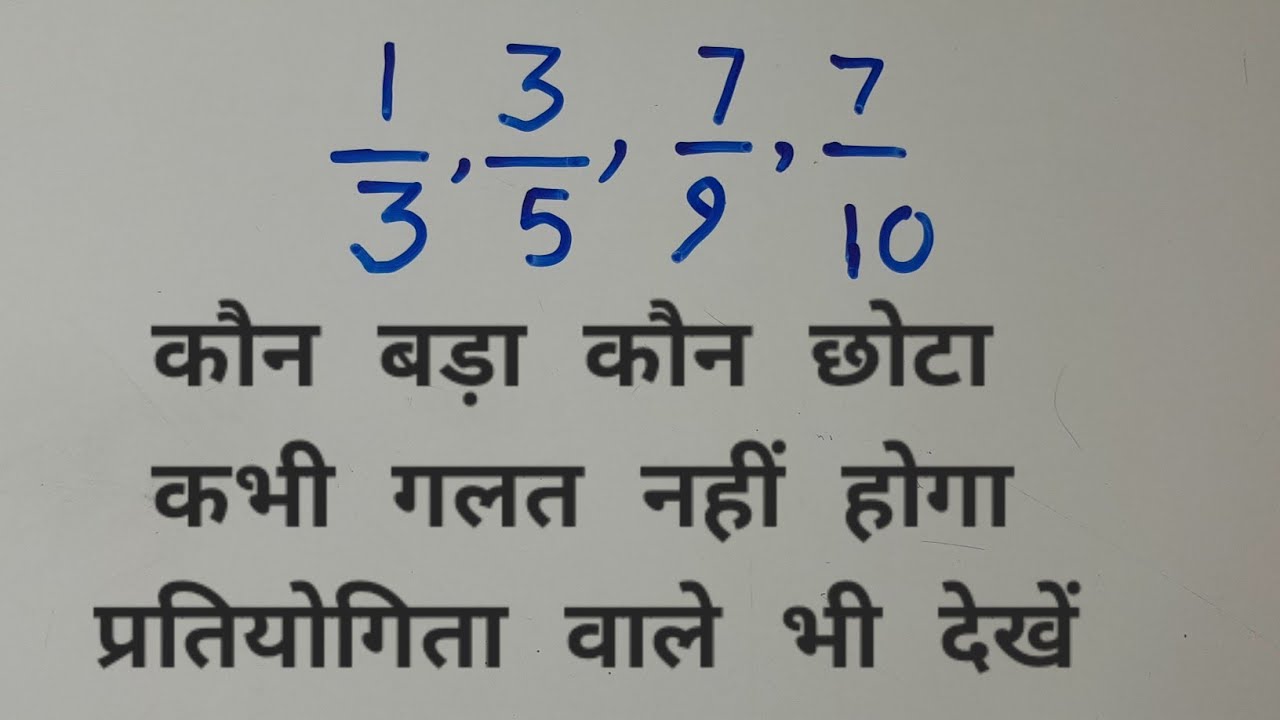 1/3, 3/5, 7/9, 7/10
कौन बड़ा कौन छोटा
कभी गलत नहीं होगा
प्रतियोगिता वाले भी देखें